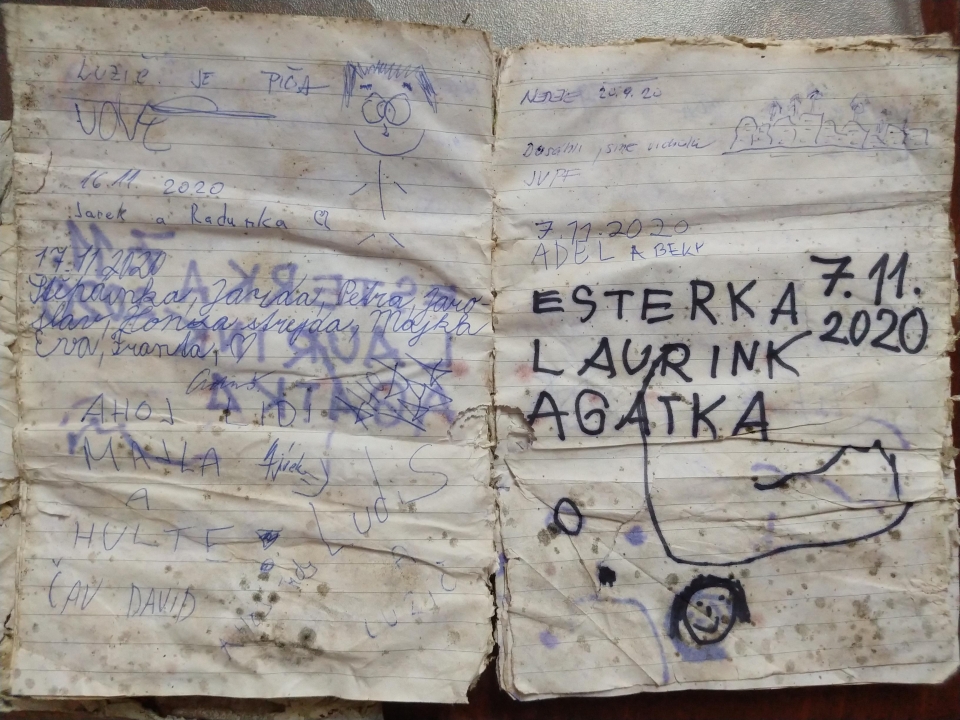 LUZIČ JE PIČA
16.11. 2020
Jarek a Radunka
17.11.2020
Štěpánka, Jarda, Petra, Jaro
slav, Honza, strejda, Majka
Eva, Franta,
AHOJ LIDI
MAJLA
A
HULTE
LudS
A
ČAV DAVID
20.9.20
Dosahli jsme vrcholu
JVPF
7.11.2020
ADEL A BEKY
ESTERKA 7.11.
2020
LAURINK
AGATKA